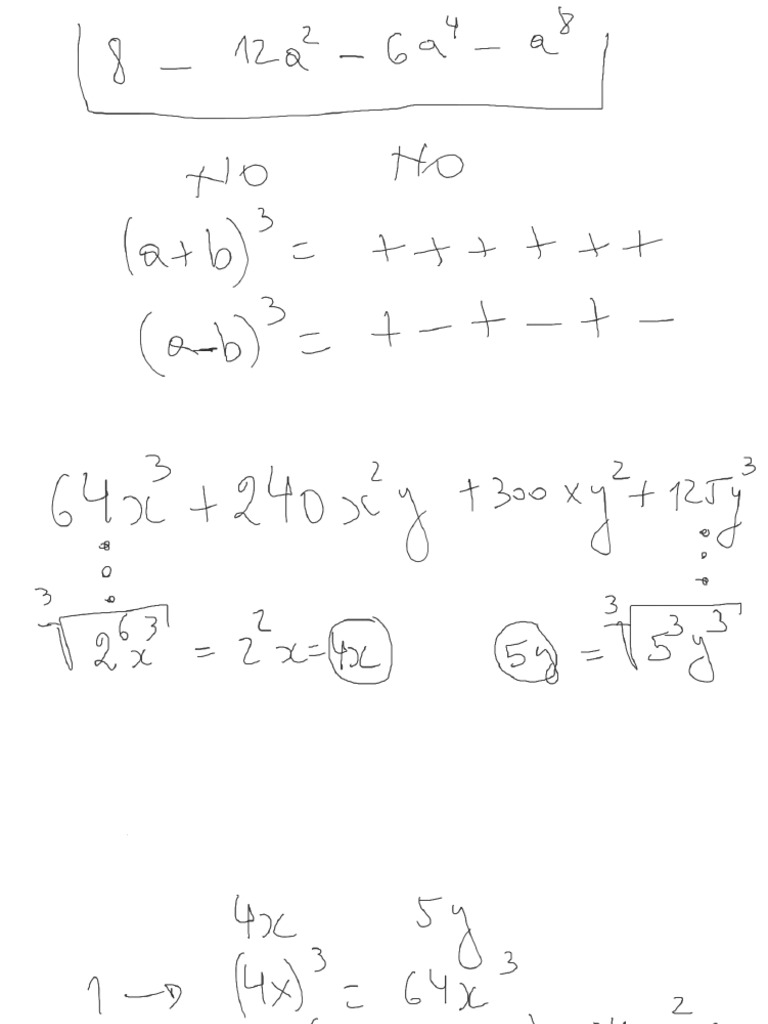 8 − 12a² − 6a⁴ − a⁸
NO NO
(a+b)³ = + + + + + +
(a−b)³ = + − + − + −
64x³ + 240x²y + 300xy² + 125y³
∛(2⁶x³) = 2²x = 4x 5y = ∛(5³y³)
4x 5y
1 → (4x)³ = 64x³